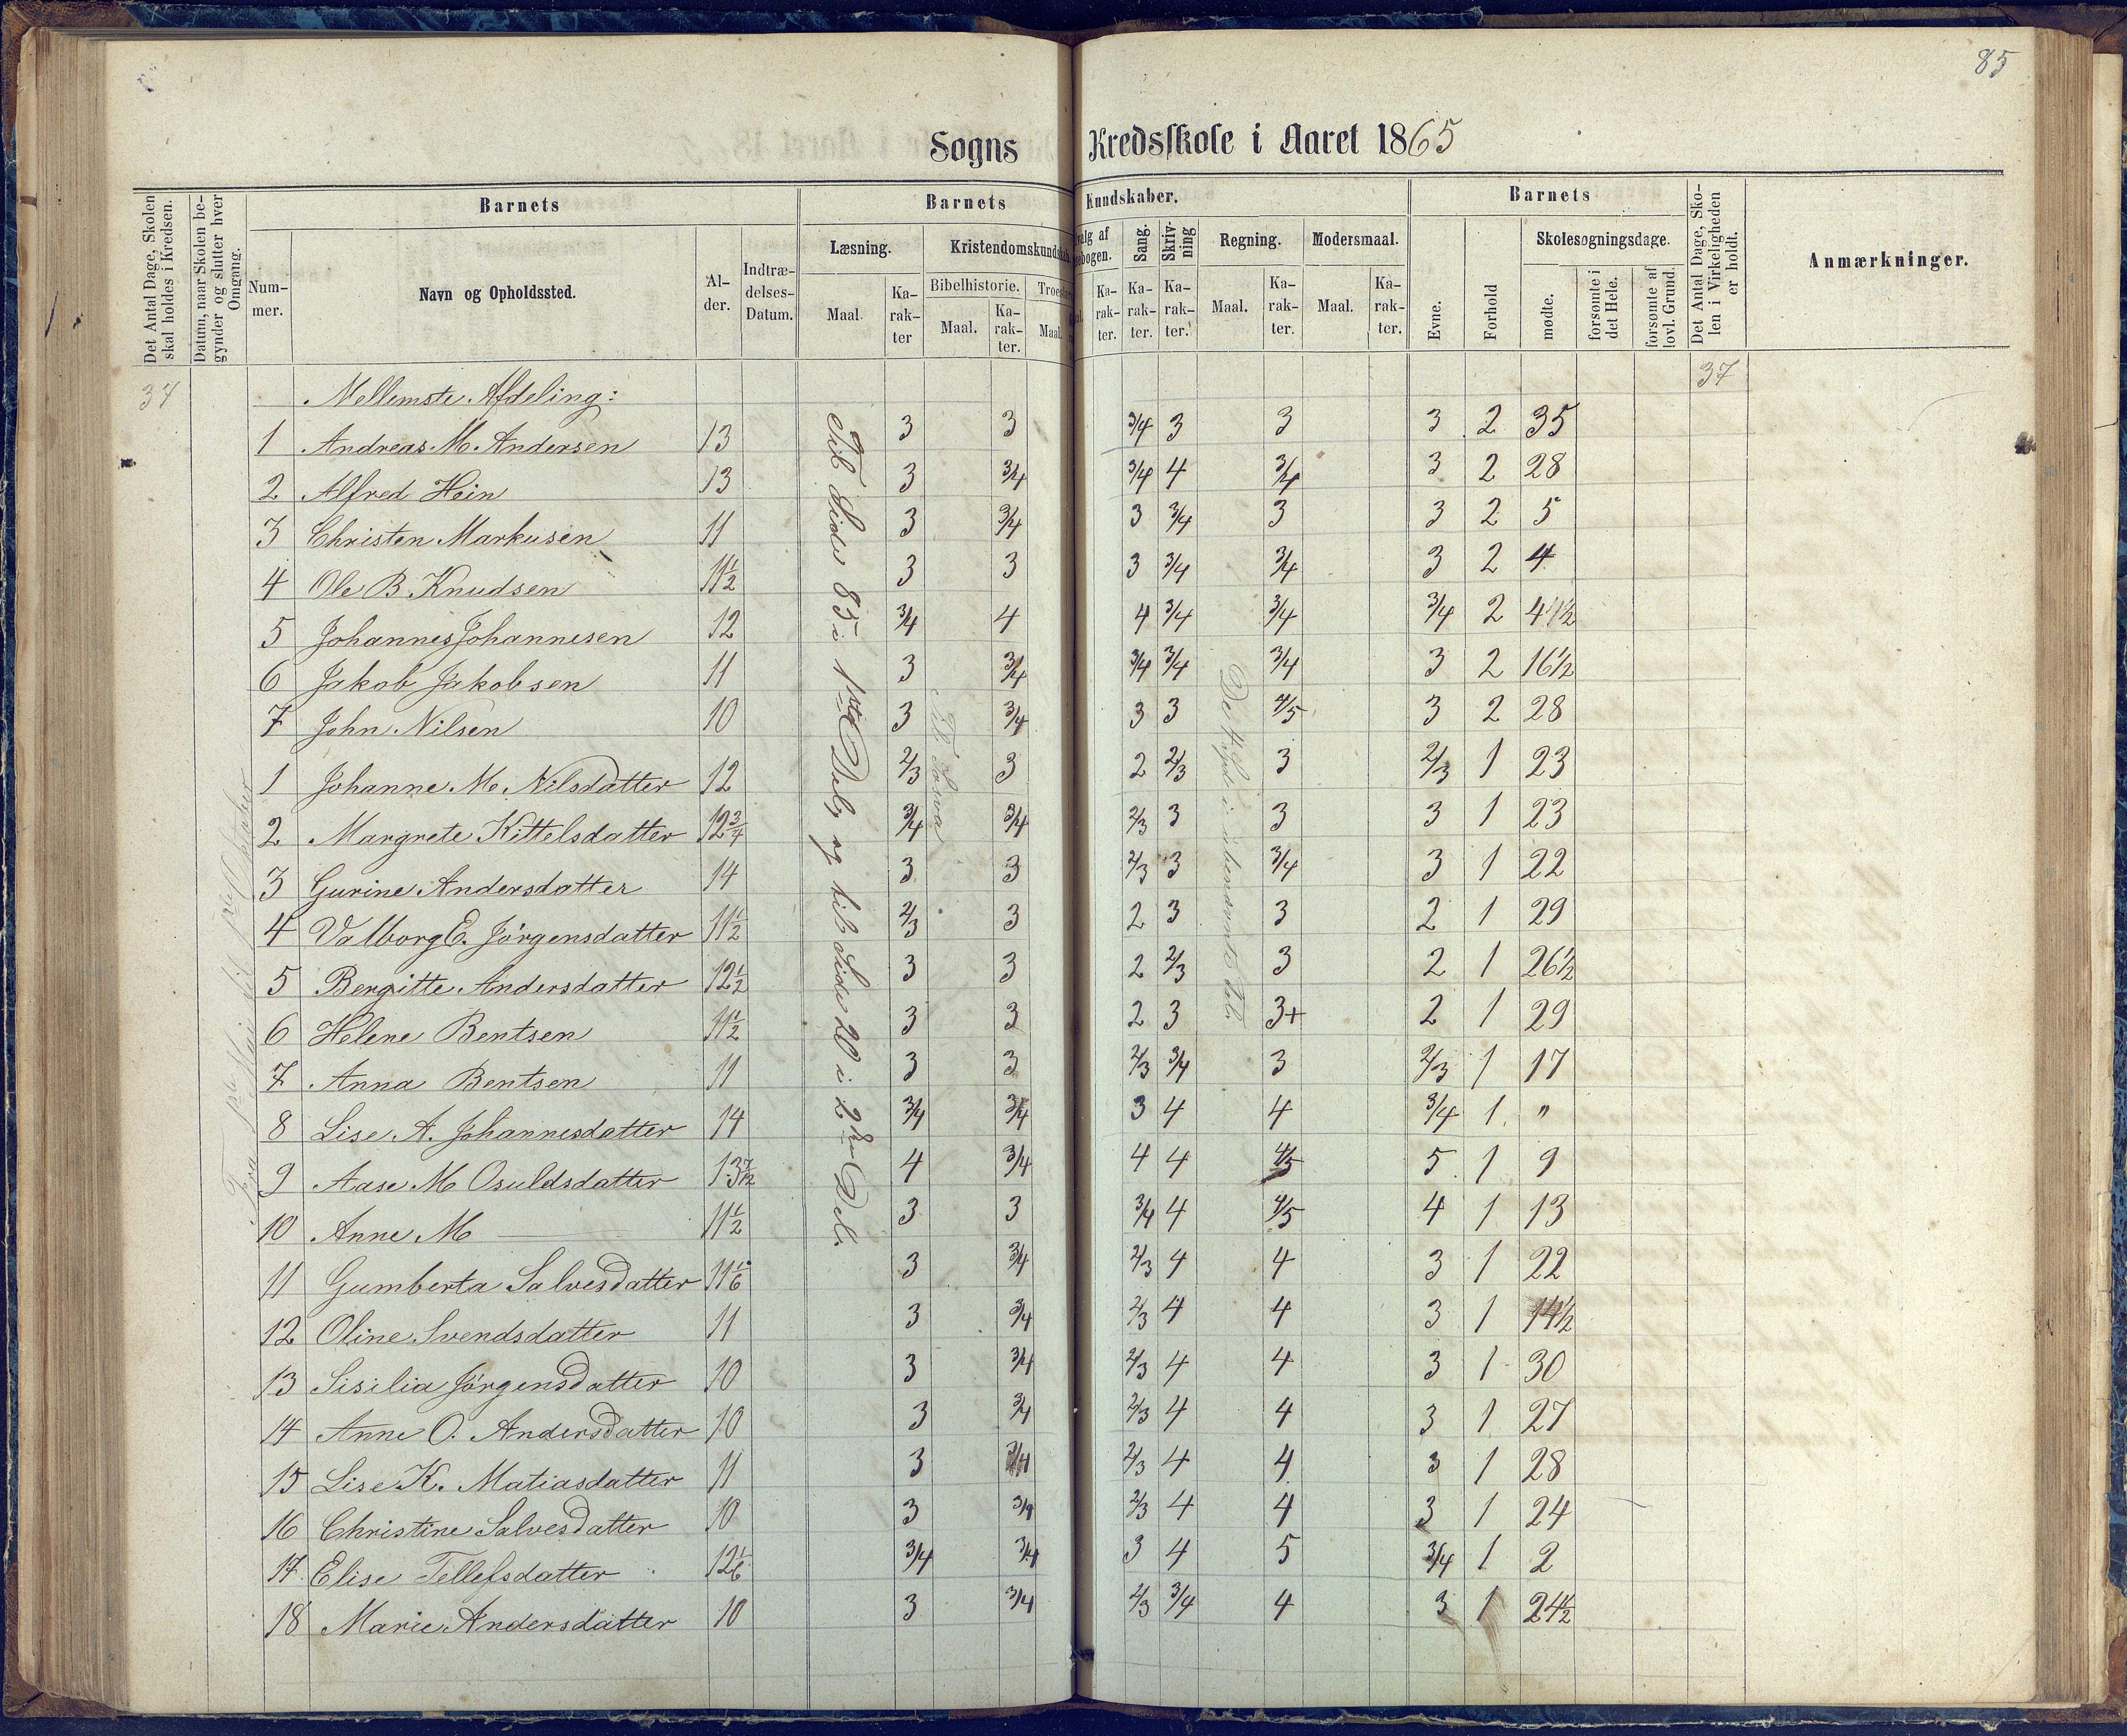 85
Sogns Kredsskole i Aaret 1865
Det Antal Dage, Skolen skal holdes i Kredsen.
Datum, naar Skolen begynder og slutter hver Omgang.
Barnets
Nummer.
Navn og Opholdssted.
Alder.
Indtrædelses-Datum.
Barnets Kundskaber.
Læsning.
Maal.
Karakter
Kristendomskundskab.
Bibelhistorie.
Maal.
Karakter.
Troes
Maal.
valg af
ebogen.
Karakter.
Sang.
Karakter.
Skrivning
Karakter.
Regning.
Maal.
Karakter.
Modersmaal.
Maal.
Karakter.
Barnets
Evne.
Forhold
Skolesøgningsdage.
mødte.
forsømte i det Hele.
forsømte af lovl. Grund.
Det Antal Dage, Skolen i Virkeligheden er holdt.
Anmærkninger.
37
Mellemste Afdeling:
37
1 Andreas M. Andersen 13 3 3 3/4 3 3 3 2 35
2 Alfred Hein 13 3 3/4 3/4 4 3/4 3 2 28
3 Christen Markusen 11 3 3/4 3 3/4 3 3 2 5
4 Ole B. Knudsen 11 1/2 3 3 3 3/4 3/4 3 2 4
5 Johannes Johannesen 12 3/4 4 4 3/4 3/4 3/4 2 4 1/2
6 Jakob Jakobsen 11 3 3/4 3/4 3/4 3/4 3 2 16 1/2
7 John Nilsen 10 3 3/4 3 3 4/5 3 2 28
1 Johanne M. Nilsdatter 12 2/3 3 2 2/3 3 2/3 1 23
2 Margrete Kittelsdatter 12 3/4 3/4 3/4 2/3 3 3 3 1 23
3 Gurine Andersdatter 14 3 3 2/3 3 3/4 3 1 22
4 Valborg E. Jörgensdatter 11 1/2 2/3 3 2 3 3 2 1 29
5 Bergitte Andersdatter 12 1/2 3 3 2 2/3 3 2 1 26 1/2
6 Helene Bentsen 11 1/2 3 3 2 3 3+ 2 1 29
7 Anna Bentsen 11 3 3 2/3 3/4 3 2/3 1 17
8 Lise A. Johannesdatter 14 3/4 3/4 3 4 4 3/4 1 "
9 Aase M Osuldsdatter 13 7/12 4 3/4 4 4 4/5 5 1 9
10 Anne M — 11 1/2 3 3 3/4 4 4/5 4 1 13
11 Gumberta Salvesdatter 11 1/6 3 3/4 2/3 4 4 3 1 22
12 Oline Svendsdatter 11 3 3/4 2/3 4 4 3 1 14 1/2
13 Sisilia Jörgensdatter 10 3 3/4 2/3 4 4 3 1 30
14 Anne O. Andersdatter 10 3 3/4 2/3 4 4 3 1 27
15 Lise K. Matiasdatter 11 3 3/4 2/3 4 4 3 1 28
16 Christine Salvesdatter 10 3 3/4 2/3 4 4 3 1 24
17 Elise Tellefsdatter 12 1/6 3/4 3/4 3 4 5 3/4 1 2
18 Marie Andersdatter 10 3 3/4 2/3 3/4 4 3 1 24 1/2
Fra 1ste Mai til
Til Side 85 i 1ste Del, og til Side 20 i 2den Del.
De 4 i ubenævnte Tal.